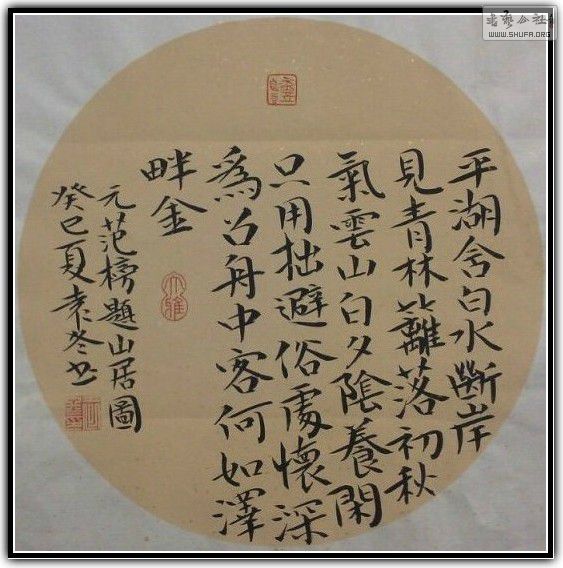 平湖含白水斷岸
見青林蘺落初秋
氣雲山白夕陰養閑
只用拙避俗處懷深
為召舟中客何如澤
畔金
元范榜題山居圖
癸巳夏袁冬书
书艺公社
WWW.SHUFA.ORG